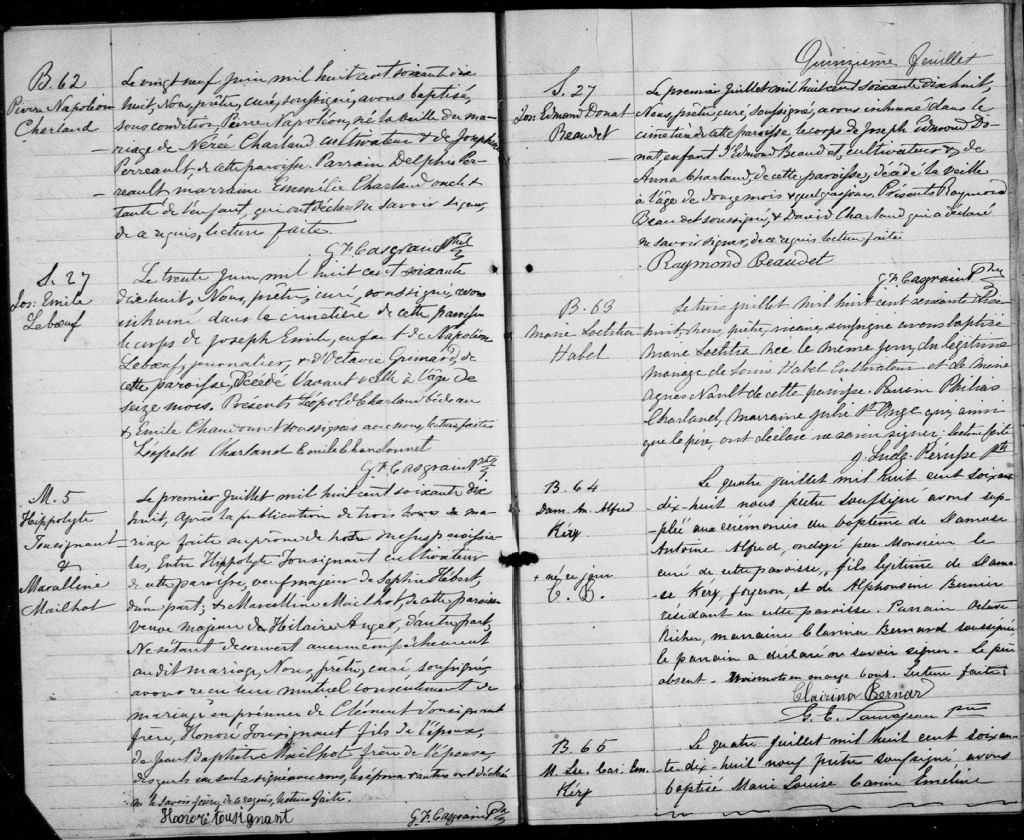 B. 62
Pierre Napoléon
Charland
Le vingt neuf juin mil huit cent soixante dix
huit, Nous, prêtre, curé, soussigné, avons baptisé,
sous condition, Pierre Napoléon, né la veille du ma-
riage de Nérée Charland cultivateur & de Josephine
Perreault, de cette paroisse. Parrain Delphis Per-
reault, marraine Emmélie Charland oncle &
tante de l'enfant, qui ont déclaré ne savoir signer,
de ce requis, lecture faite.
G. F. Casgrain Ptre
S. 27
Jos: Emile
Lebœuf
Le trente Juin mil huit cent soixante
dix huit, Nous, prêtre, curé, soussigné, avons
inhumé dans le cimetière de cette paroisse
le corps de Joseph Emile, enfant de Napoléon
Lebœuf, journalier, & d'Octavie Grimard, de
cette paroisse, Décédé l'avant veille à l'âge de
seize mois. Présents Léopold Charland bedeau
& Emile Chandonnet soussignés avec nous, lecture faite
Léopold Charland Emile Chandonnet
G. F. Casgrain Ptre
M. 5
Hippolyte
Tousignant
&
Marcelline
Mailhot
Le premier Juillet mil huit cent soixante dix
huit, après la publication de trois bans de ma-
riage faite au prône de nos messes paroissia-
les, Entre Hippolyte Tousignant cultivateur
de cette paroisse, veuf majeur de Sophie Hébert,
d'une part; & Marcelline Mailhot, de cette paroisse
veuve majeure de Hilaire Auger, d'autre part,
Ne s'étant découvert aucun empêchement
au dit mariage, Nous, prêtre, curé, soussigné,
avons reçu leur mutuel consentement de
mariage en présence de Clément Tousignant
frère, Honoré Tousignant fils de l'époux,
de Jean Baptiste Mailhot frère de l'épouse,
desquels un seul a signé avec nous, les époux & autres ont déclaré
ne le savoir faire, de ce requis, lecture faite.
Honoré tousignant
G. F. Casgrain Ptre
Quinzième feuillet
S. 27
Jos: Edmond Donat
Beaudet
Le premier Juillet mil huit cent soixante dix huit,
Nous, prêtre, curé, soussigné, avons inhumé dans le
cimetière de cette paroisse le corps de Joseph Edmond Do-
nat, enfant d'Edmond Beaudet, cultivateur & de
Anna Charland, de cette paroisse, décédé la veille
à l'âge de douze mois & quelques jours. Présents Raymond
Beaudet soussigné, & David Charland qui a déclaré
ne savoir signer, de ce requis lecture faite
Raymond Beaudet
G. F. Casgrain Ptre
B. 63
Marie Loetitia
Habel
Le trois juillet mil huit cent soixante dix
huit, nous, prêtre, vicaire, soussigné avons baptisé
Marie Loetitia née le même jour, du légitime
mariage de Louis Habel Cultivateur et de Marie
Agnès Nault de cette paroisse. Parrain Philias
Charland, Marraine Julie St Onge qui, ainsi
que le père, ont déclaré ne savoir signer: lecture faite
J. Ludg. Perusse Ptre
B. 64
Dam. An. Alfred
Kéry
+ né, ce jour
G. B.
Le quatre juillet mil huit cent soixante
dix-huit nous prêtre soussigné avons sup-
pléé aux cérémonies du baptême de Damase
Antoine Alfred, ondoyé par Monsieur le
curé de cette paroisse, fils légitime de Dama-
se Kéry, forgeron et de Alphonsine Bernier
résidant en cette paroisse. Parrain Octave
Richer, marraine Clarina Bernard soussignée
le parrain a déclaré ne savoir signer. Le père
absent. Trois mots en marge bons. Lecture faite.
Clairina Bernard
B. 65
M. Lse. Car. Em.
Kéry
Le quatre juillet mil huit cent soixan-
te-dix-huit nous prêtre soussigné, avons
baptisé Marie Louise Carine Emeline